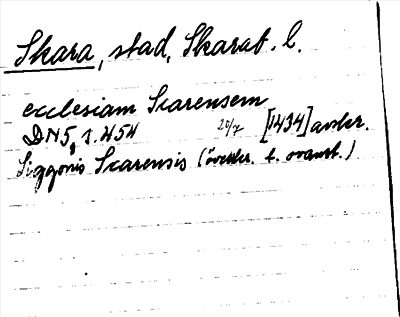 Skara, stad, Skarab. l.
ecclesiam Scarensem
DN5, s. 454 20/7 [1434] avskr.
Siggonis Scarensis (överskr. t. ovanst.)